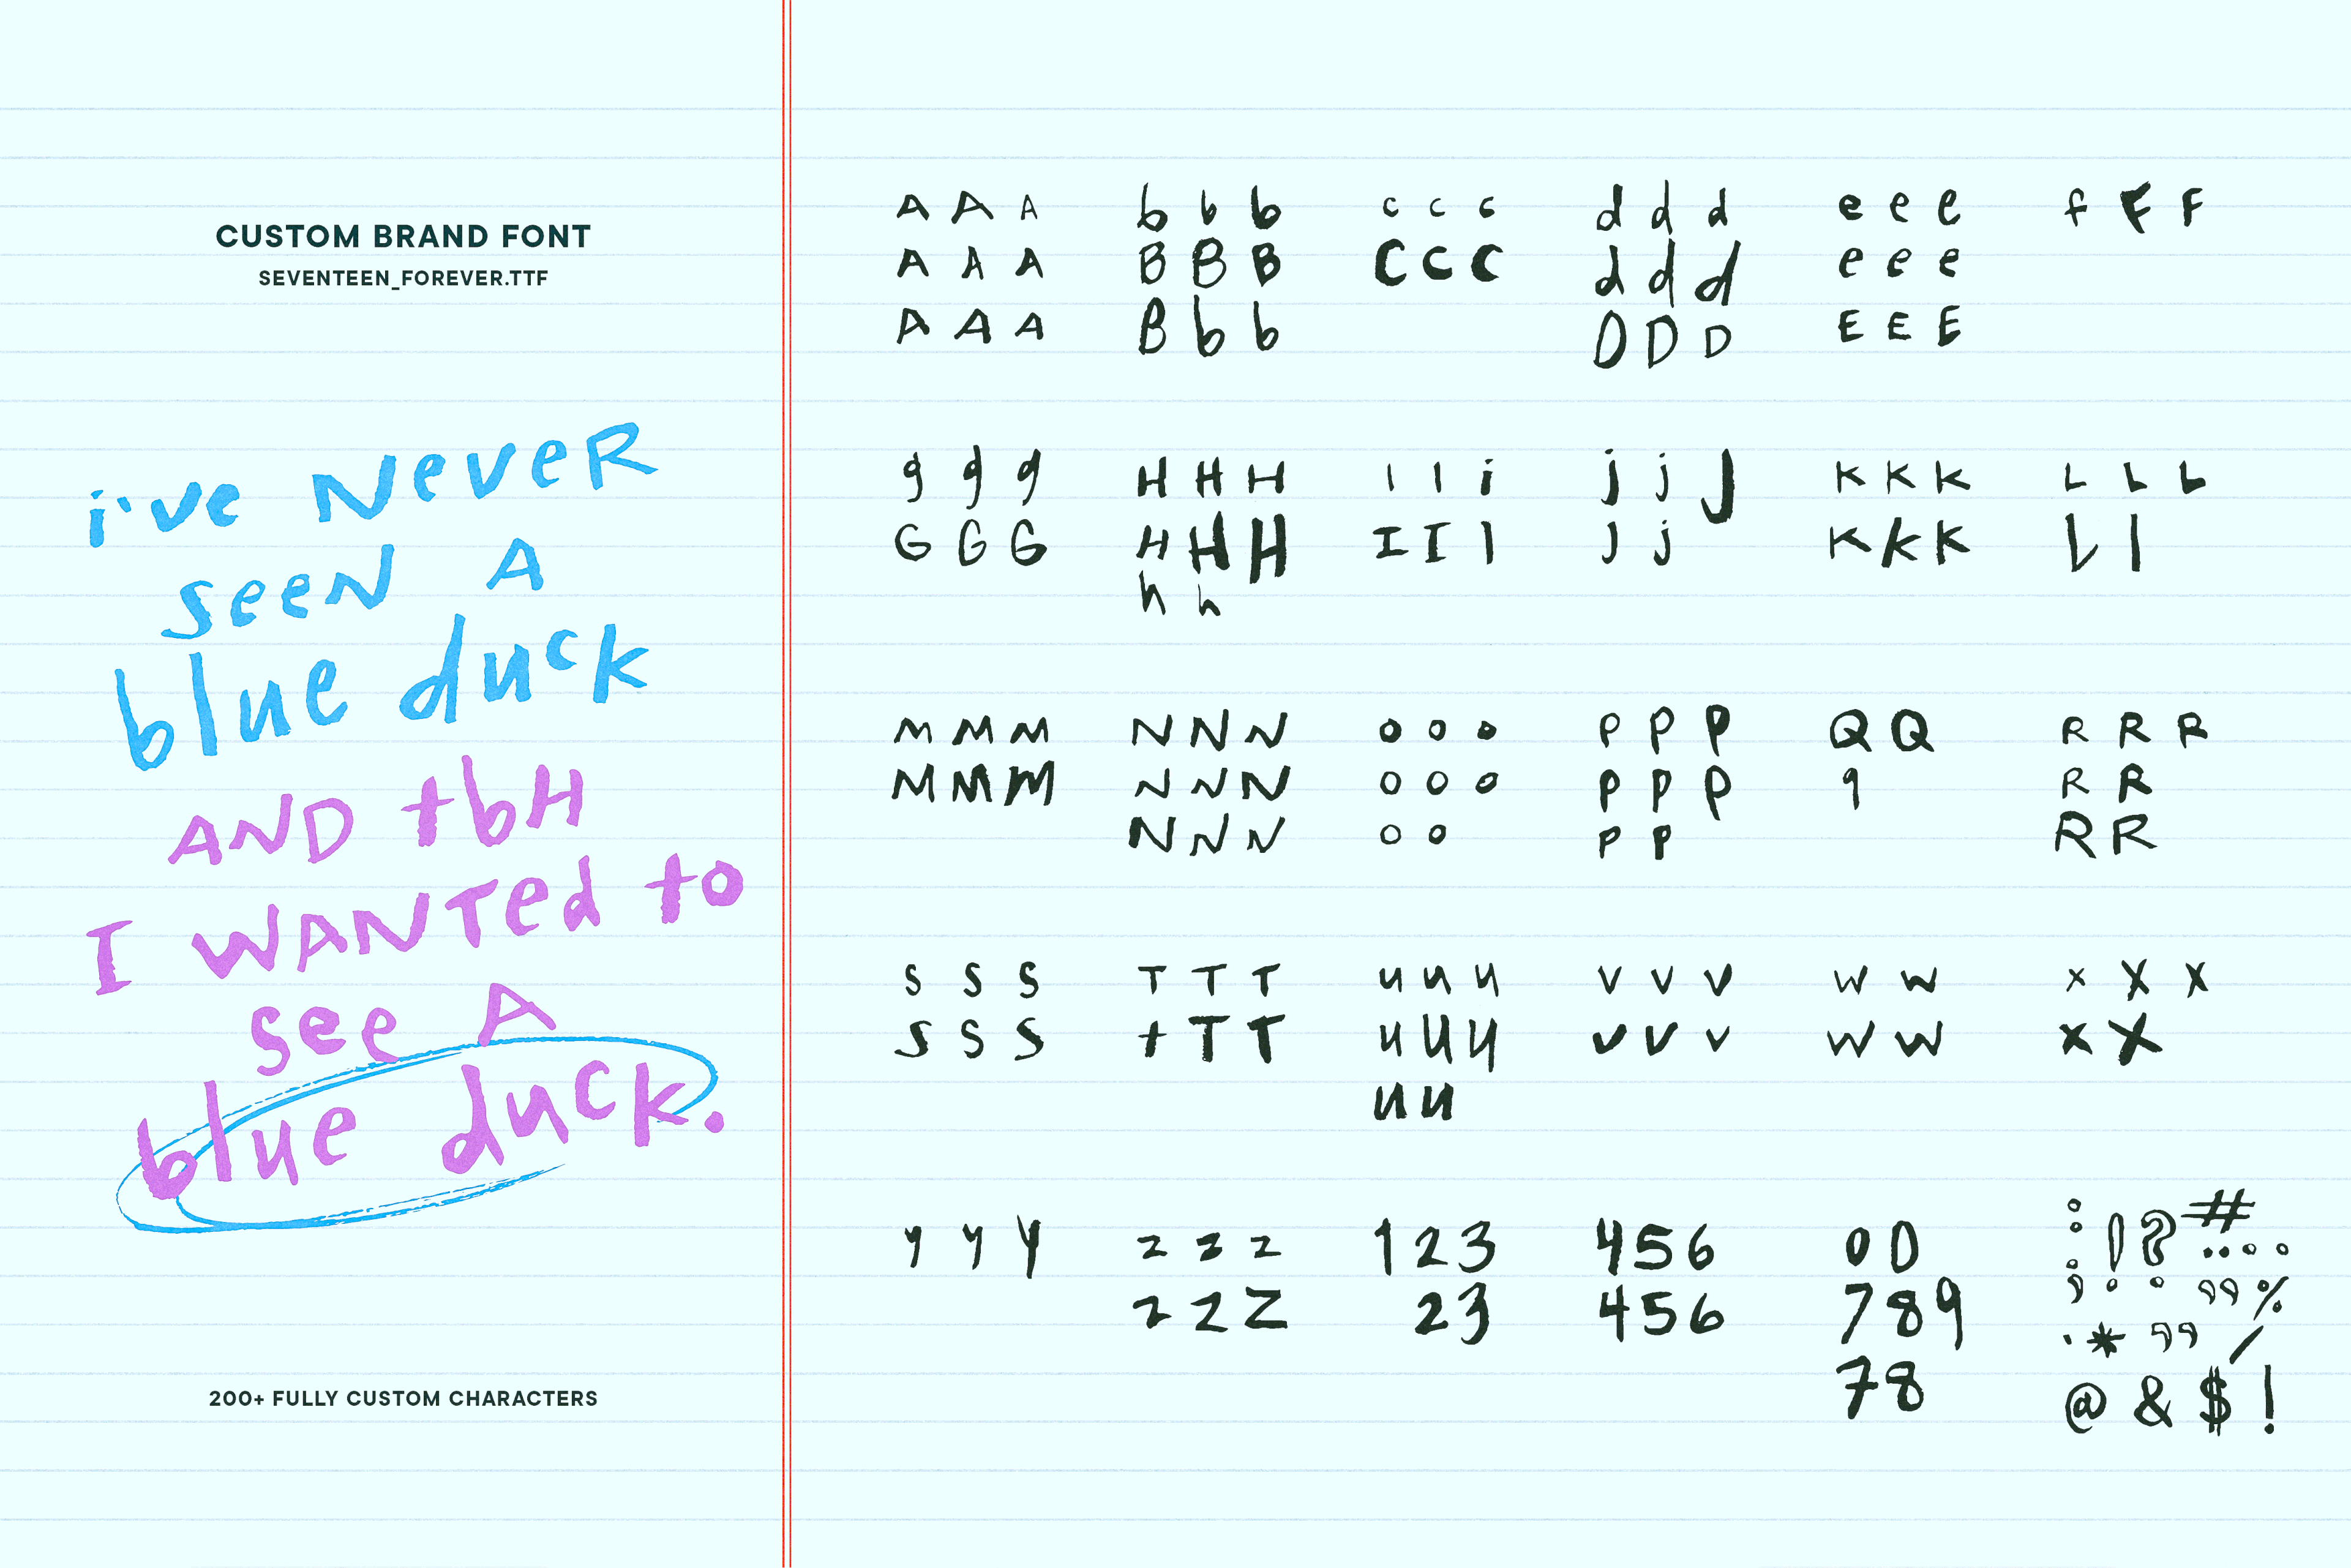 CUSTOM BRAND FONT
SEVENTEEN_FOREVER.TTF
i've NeveR
seeN A
blue duck
AND tbH
I WANTed to
see A
blue duck.
200+ FULLY CUSTOM CHARACTERS
A A A b b b c c c d d d e e e f F F
A A A B B B C C C d d d e e e
A A A B b b D D D E E E
g g g H H H I I i j j J K K K L L L
G G G H H H I I l J j K K K L l
h h
M M M N N N o o o P P P Q Q R R R
M M M N N N o o o P P P q R R
N N N o o P P R R
s s s T T T u u u v v v w w x x x
s s s t T T u u u v v v w w x x
u u
y y y z z z 1 2 3 4 5 6 0 0 : ! ? # .. . .
z z z 2 3 4 5 6 7 8 9 ; ° ° ,, %
7 8 . * ,, /
@ & $ !